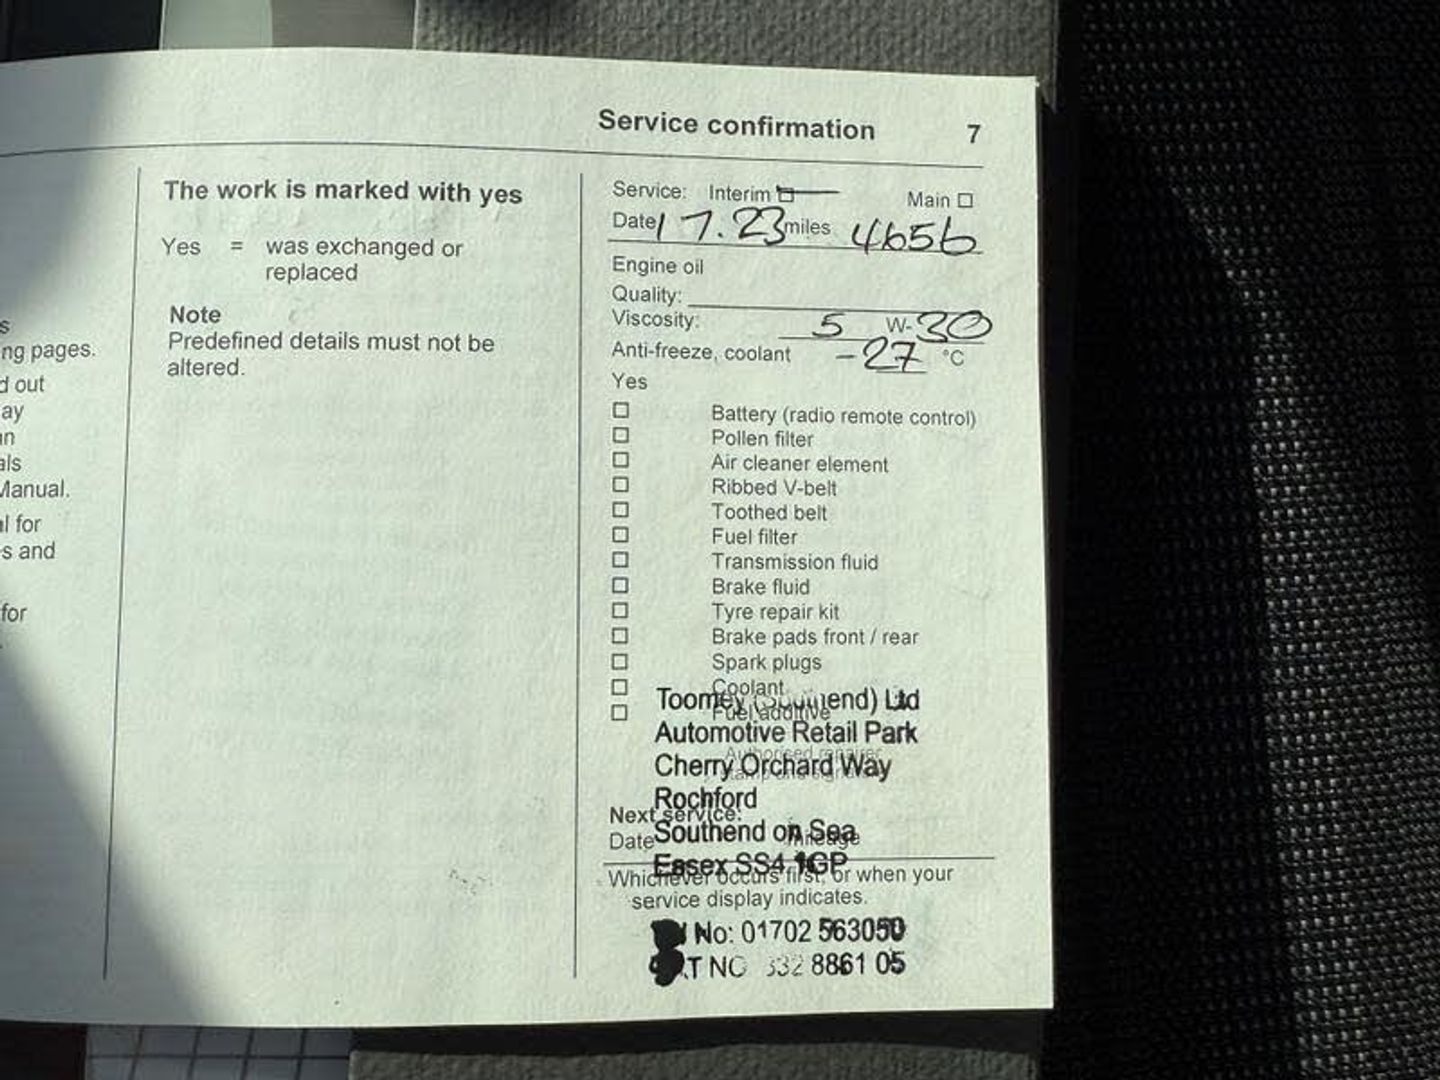 Service confirmation 7
s
ng pages.
d out
ay
n
als
Manual.
l for
s and
for
The work is marked with yes
Yes = was exchanged or
replaced
Note
Predefined details must not be
altered.
Service: Interim ☐ Main ☐
Date 17.23 miles 4656
Engine oil
Quality:
Viscosity: 5 W-30
Anti-freeze, coolant -27 °C
Yes
☐ Battery (radio remote control)
☐ Pollen filter
☐ Air cleaner element
☐ Ribbed V-belt
☐ Toothed belt
☐ Fuel filter
☐ Transmission fluid
☐ Brake fluid
☐ Tyre repair kit
☐ Brake pads front / rear
☐ Spark plugs
☐ Coolant
☐ Fuel additive
Authorised repairer
Toomey (Southend) Ltd
Automotive Retail Park
Cherry Orchard Way
Rochford
Next service:
Southend on Sea
Date mileage
Essex SS4 1GP
Whichever occurs first, or when your
service display indicates.
No: 01702 563050
VAT NO 332 8861 05